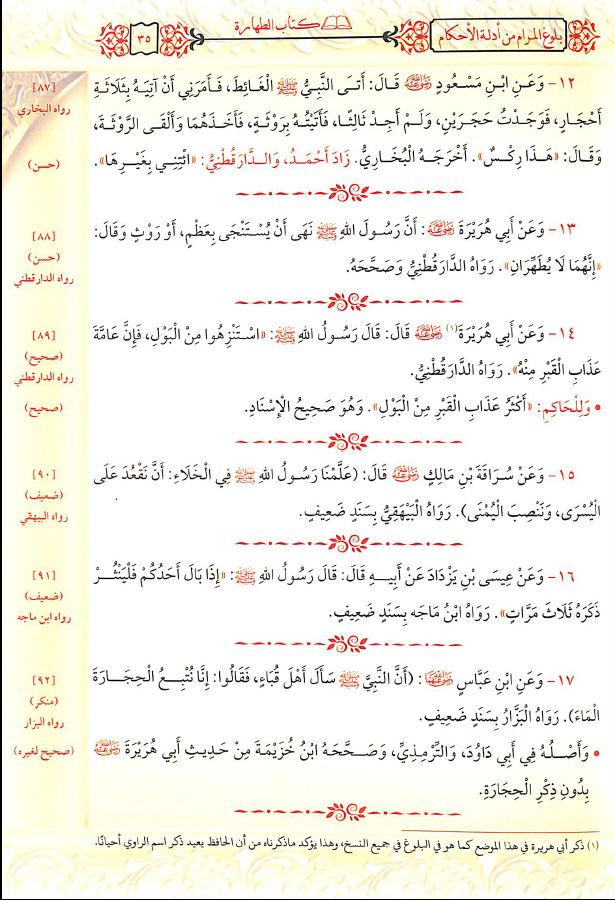 بلوغ المرام من أدلة الأحكام
كتاب الطهارة
٣٥
١٢- وَعَنِ ابْنِ مَسْعُودٍ رضي الله عنه قَالَ: أَتَى النَّبِيُّ ﷺ الْغَائِطَ، فَأَمَرَنِي أَنْ آتِيَهُ بِثَلَاثَةِ
[٨٧]
رواه البخاري
أَحْجَارٍ، فَوَجَدْتُ حَجَرَيْنِ، وَلَمْ أَجِدْ ثَالِثًا، فَأَتَيْتُهُ بِرَوْثَةٍ، فَأَخَذَهُمَا وَأَلْقَى الرَّوْثَةَ،
وَقَالَ: «هَذَا رِكْسٌ». أَخْرَجَهُ الْبُخَارِيُّ. زَادَ أَحْمَدُ، وَالدَّارَقُطْنِيُّ: «ائْتِنِي بِغَيْرِهَا».
(حسن)
١٣- وَعَنْ أَبِي هُرَيْرَةَ رضي الله عنه: أَنَّ رَسُولَ اللهِ ﷺ نَهَى أَنْ يُسْتَنْجَى بِعَظْمٍ، أَوْ رَوْثٍ وَقَالَ:
[٨٨]
(حسن)
رواه الدارقطني
«إِنَّهُمَا لَا يُطَهِّرَانِ». رَوَاهُ الدَّارَقُطْنِيُّ وَصَحَّحَهُ.
١٤- وَعَنْ أَبِي هُرَيْرَةَ(١) رضي الله عنه قَالَ: قَالَ رَسُولُ اللهِ ﷺ: «اسْتَنْزِهُوا مِنْ الْبَوْلِ، فَإِنَّ عَامَّةَ
[٨٩]
(صحيح)
رواه الدارقطني
عَذَابِ الْقَبْرِ مِنْهُ». رَوَاهُ الدَّارَقُطْنِيُّ.
• وَلِلْحَاكِمِ: «أَكْثَرُ عَذَابِ الْقَبْرِ مِنْ الْبَوْلِ». وَهُوَ صَحِيحُ الْإِسْنَادِ.
(صحيح)
١٥- وَعَنْ سُرَاقَةَ بْنِ مَالِكٍ رضي الله عنه قَالَ: (عَلَّمْنَا رَسُولُ اللهِ ﷺ فِي الْخَلَاءِ: أَنَّ نَقْعُدَ عَلَى
[٩٠]
(ضعيف)
رواه البيهقي
الْيُسْرَى، وَنَنْصِبَ الْيُمْنَى). رَوَاهُ الْبَيْهَقِيُّ بِسَنَدٍ ضَعِيفٍ.
١٦- وَعَنْ عِيسَى بْنِ يَزْدَادَ عَنْ أَبِيهِ قَالَ: قَالَ رَسُولُ اللهِ ﷺ: «إِذَا بَالَ أَحَدُكُمْ فَلْيَنْثُرْ
[٩١]
(ضعيف)
رواه ابن ماجه
ذَكَرَهُ ثَلَاثَ مَرَّاتٍ». رَوَاهُ ابْنُ مَاجَه بِسَنَدٍ ضَعِيفٍ.
١٧- وَعَنِ ابْنِ عَبَّاسٍ رضي الله عنهما: (أَنَّ النَّبِيَّ ﷺ سَأَلَ أَهْلَ قُبَاءٍ، فَقَالُوا: إِنَّا نُتْبِعُ الْحِجَارَةَ
[٩٢]
(منكر)
رواه البزار
الْمَاءَ). رَوَاهُ الْبَزَّارُ بِسَنَدٍ ضَعِيفٍ.
• وَأَصْلُهُ فِي أَبِي دَاوُدَ، وَالتِّرْمِذِيِّ، وَصَحَّحَهُ ابْنُ خُزَيْمَةَ مِنْ حَدِيثِ أَبِي هُرَيْرَةَ رضي الله عنه
(صحيح لغيره)
بِدُونِ ذِكْرِ الْحِجَارَةِ.
(١) ذكر أبي هريرة في هذا الموضع كما هو في البلوغ في جميع النسخ، وهذا يؤكد ماذكرناه من أن الحافظ يعيد ذكر اسم الراوي أحيانًا.